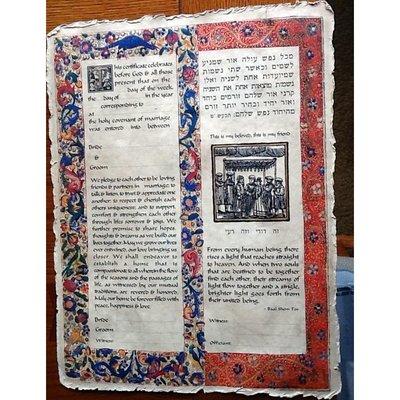 This certificate celebrates
before God & all those
present that on the
day of the week,
the day of in the year
corresponding to
at
the holy covenant of marriage
was entered into between
Bride
&
Groom
We pledge to each other to be loving
friends & partners in marriage; to
talk & listen, to trust & appreciate one
another; to respect & cherish each
others uniqueness; and to support,
comfort & strengthen each other
through life's sorrows & joys. We
further promise to share hopes,
thoughts & dreams as we build our
lives together. May we grow our lives
ever entwined, our love bringing us
closer. We shall endeavor to
establish a home that is
compassionate to all wherein the flow
of the seasons and the passages of
life, as witnessed by our mutual
traditions, are revered & honored.
May our home be forever filled with
peace, happiness & love.
Bride
Groom
Witness
מכל נפש עולה אור שמגיע
לשמים וכאשר שתי נשמות
שמיועדות אחת לשניה ואלי
נשמות מוצאות אחת את השניה
קרני אור שלהם זורמים ביחד
ואור יחיד ובהיר יותר זורם
מהיחוד נפש שלהם.
This is my beloved, this is my friend
זה דודי וזה רעי
From every human being, there
rises a light that reaches straight
to heaven. And when two souls
that are destined to be together
find each other, their streams of
light flow together and a single,
brighter light goes forth from
their united being.
- Baal Shem Tov
Witness
Officiant